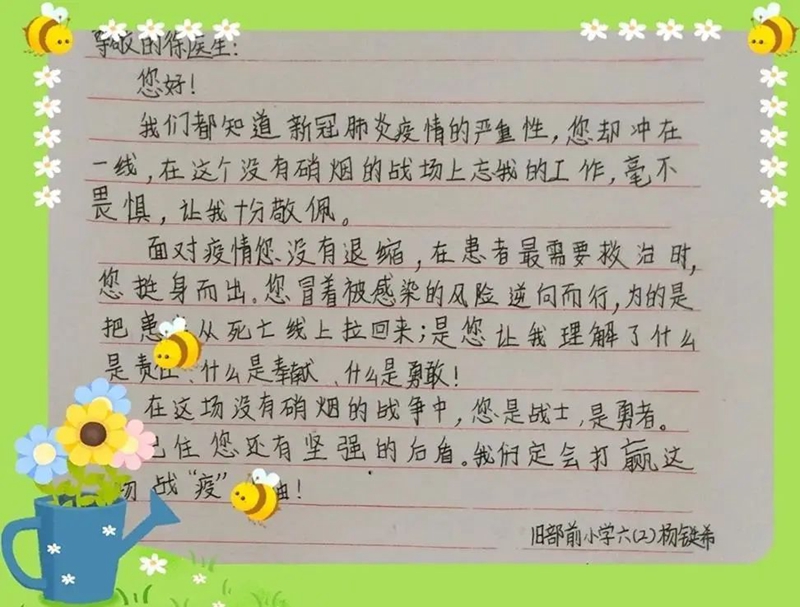 尊敬的徐医生:
您好!
我们都知道新冠肺炎疫情的严重性,您却冲在
一线,在这个没有硝烟的战场上忘我的工作,毫不
畏惧,让我十分敬佩。
面对疫情您没有退缩,在患者最需要救治时,
您挺身而出。您冒着被感染的风险逆向而行,为的是
把患 从死亡线上拉回来;是您让我理解了什么
是责任、什么是奉献、什么是勇敢!
在这场没有硝烟的战争中,您是战士,是勇者。
记住您还有坚强的后盾。我们定会打赢这
场战“疫” !
旧部前小学六(2)杨 希